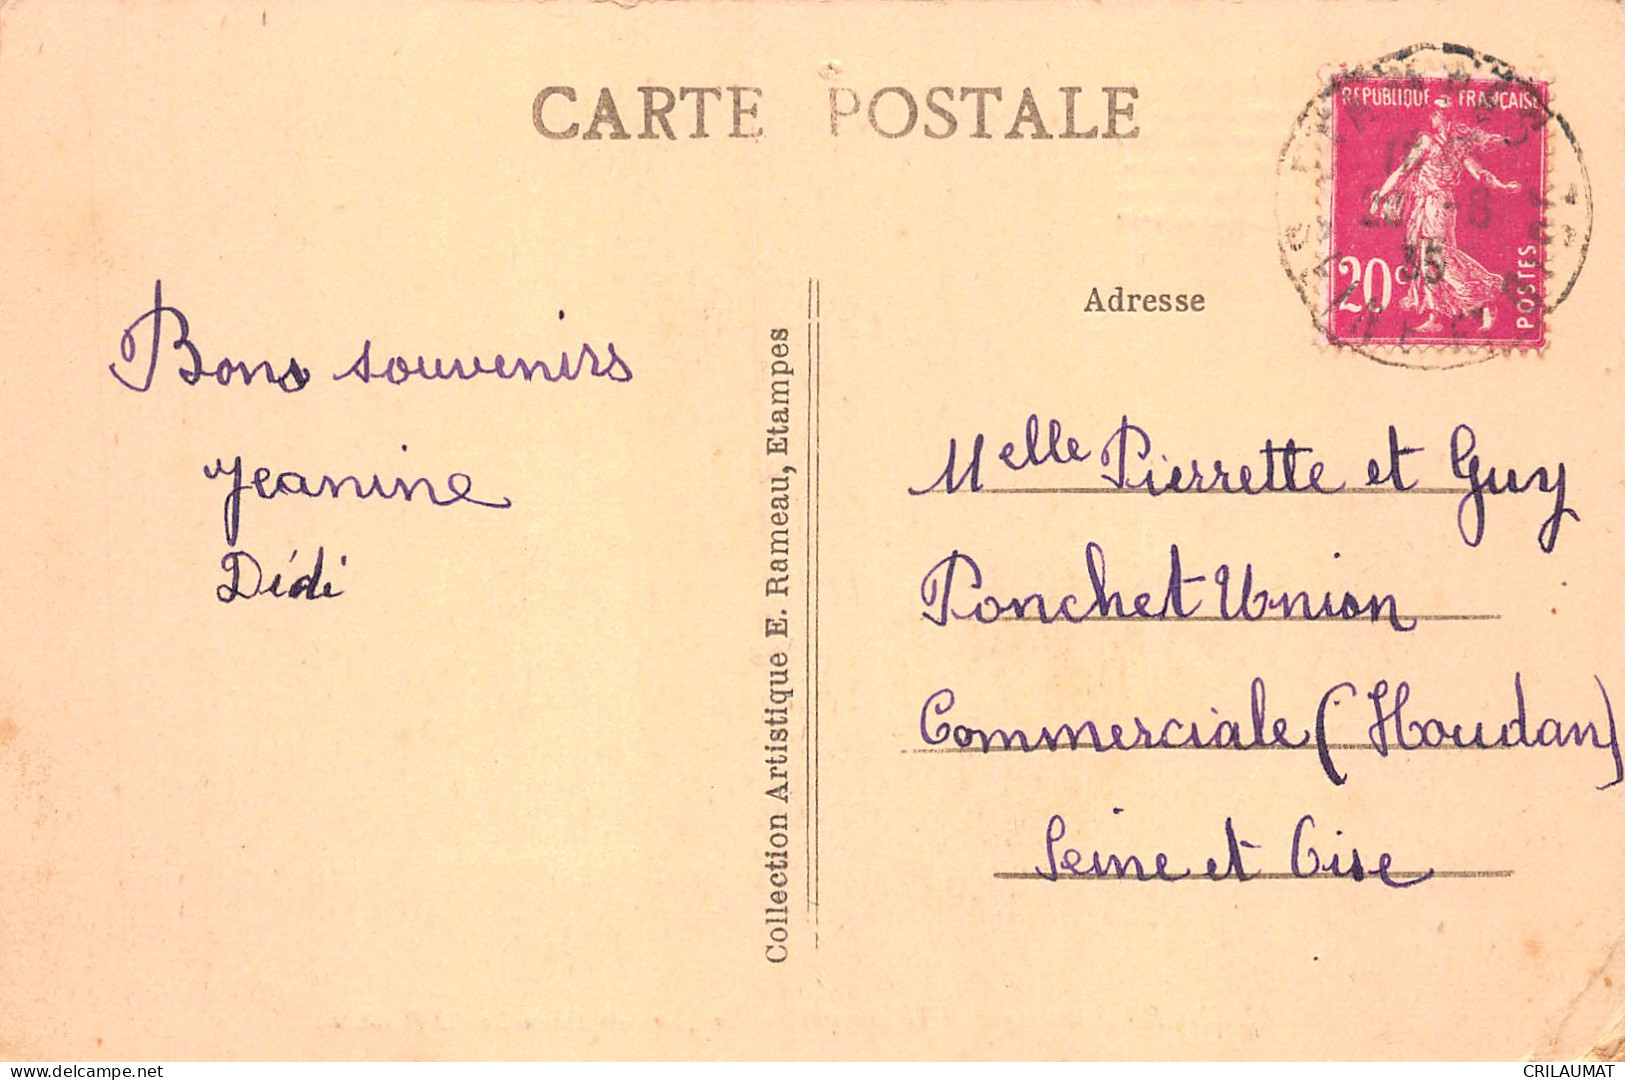 CARTE POSTALE
REPUBLIQUE FRANÇAISE
20c
POSTES
35
Adresse
Bons souvenirs
Jeanine
Dédi
Collection Artistique E. Rameau, Etampes
Melle Pierrette et Guy
Ponchet Union
Commerciale (Houdan)
Seine et Oise
delcampe.net
CRILAUMAT